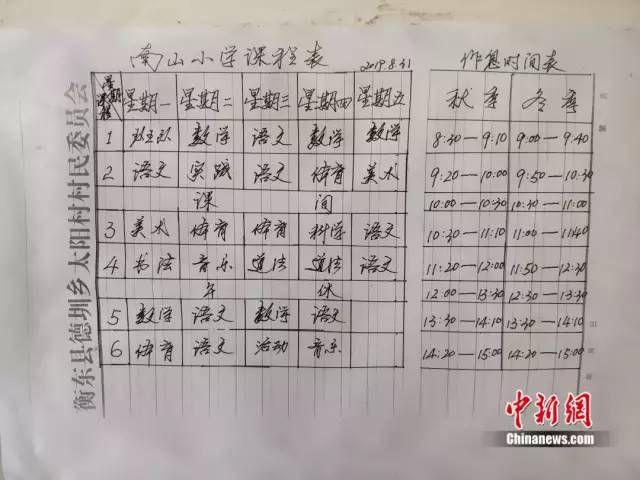 南山小学课程表 2019.8.31 作息时间表
星期 星期一 星期二 星期三 星期四 星期五 秋季 冬季
1 数学 语文 数学 数学 8:30—9:10 9:00—9:40
2 语文 实践 语文 体育 美术 9:20—10:00 9:50—10:30
课间 10:00—10:30 10:30—11:00
3 美术 体育 体育 科学 语文 10:30—11:10 11:00—11:40
4 书法 音乐 道法 道法 语文 11:20—12:00 11:50—12:30
午休 12:00—13:30 12:30—13:30
5 数学 语文 数学 语文 13:30—14:10 13:30—14:10
6 体育 语文 活动 音乐 14:20—15:00 14:20—15:00
衡东县德圳乡太阳村村民委员会
中新网
Chinanews.com